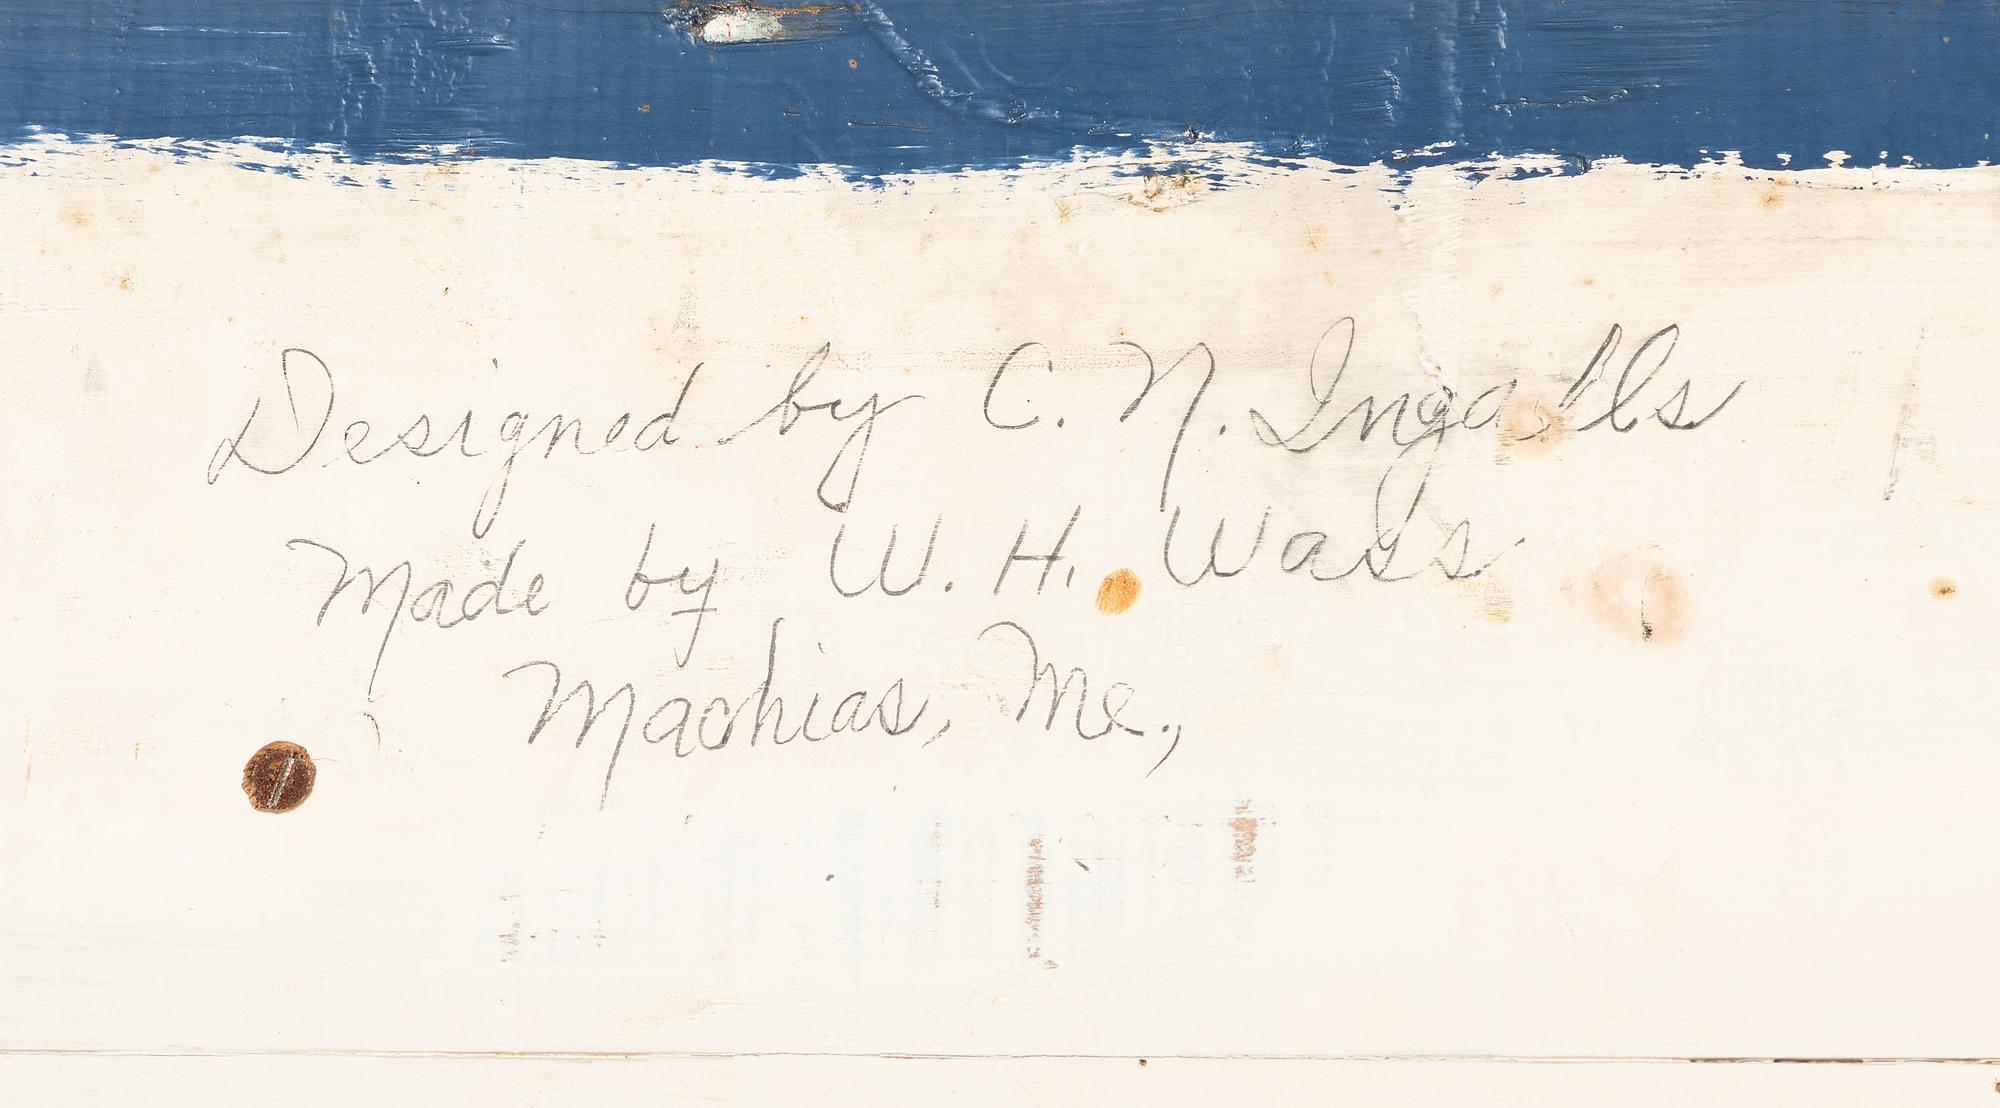 Designed by C. N. Ingalls
Made by W. H. Wass
Machias, Me.,